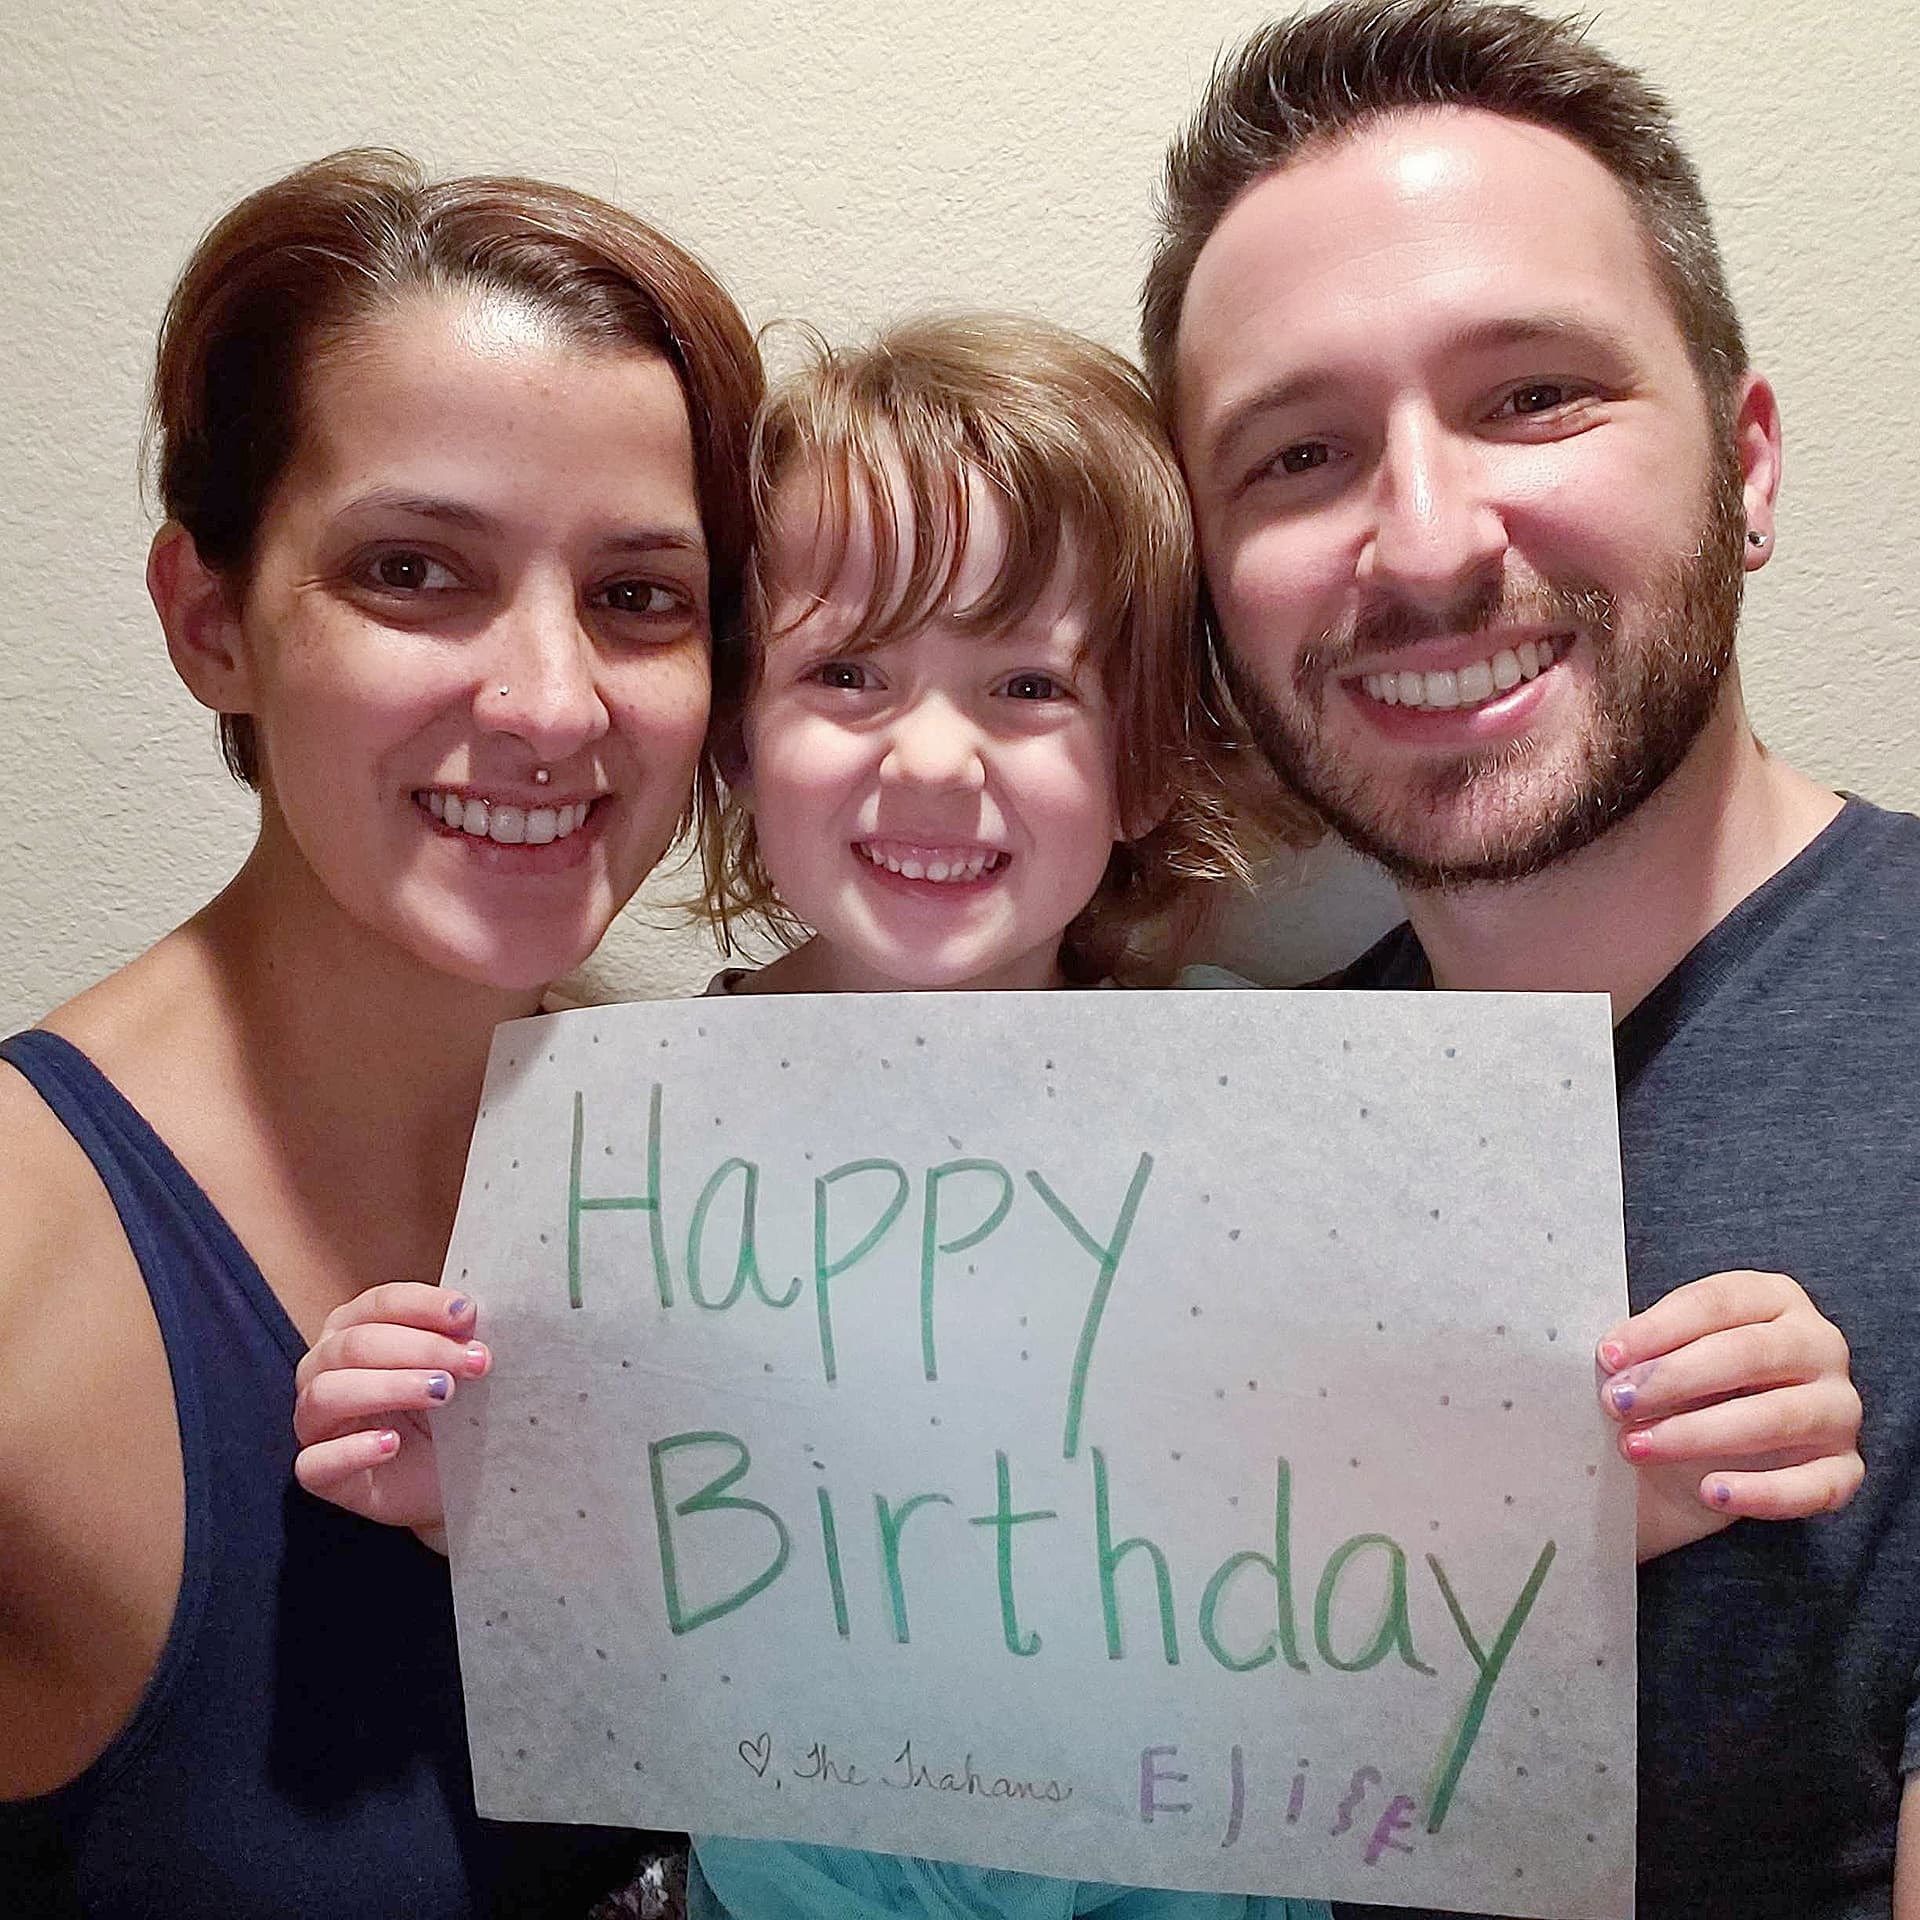 Happy
Birthday
♡, The Trahans ElisE